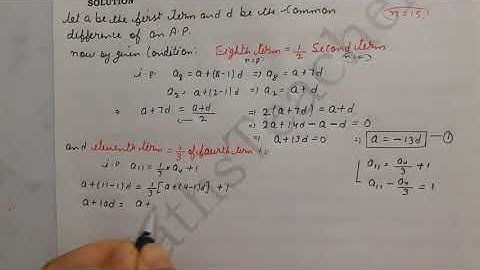 SOLUTION
Let a be the first term and d be the common (n=15)
difference of an A.P.
now by given condition: Eighth term = 1/2 Second term
n=8 n=2
i.e. a₈ = a+(8-1)d ⇒ a₈ = a+7d
a₂ = a+(2-1)d ⇒ a₂ = a+d
⇒ a+7d = (a+d)/2 ⇒ 2(a+7d) = a+d
⇒ 2a+14d-a-d=0
⇒ a+13d=0 ⇒ a=-13d —①
and eleventh term = 1/3 of fourth term + 1
i.e. a₁₁ = 1/3 × a₄ + 1
a₁₁ = a₄/3 + 1
a+(11-1)d = 1/3[a+(4-1)d] + 1
a₁₁ - a₄/3 = 1
a+10d = a+